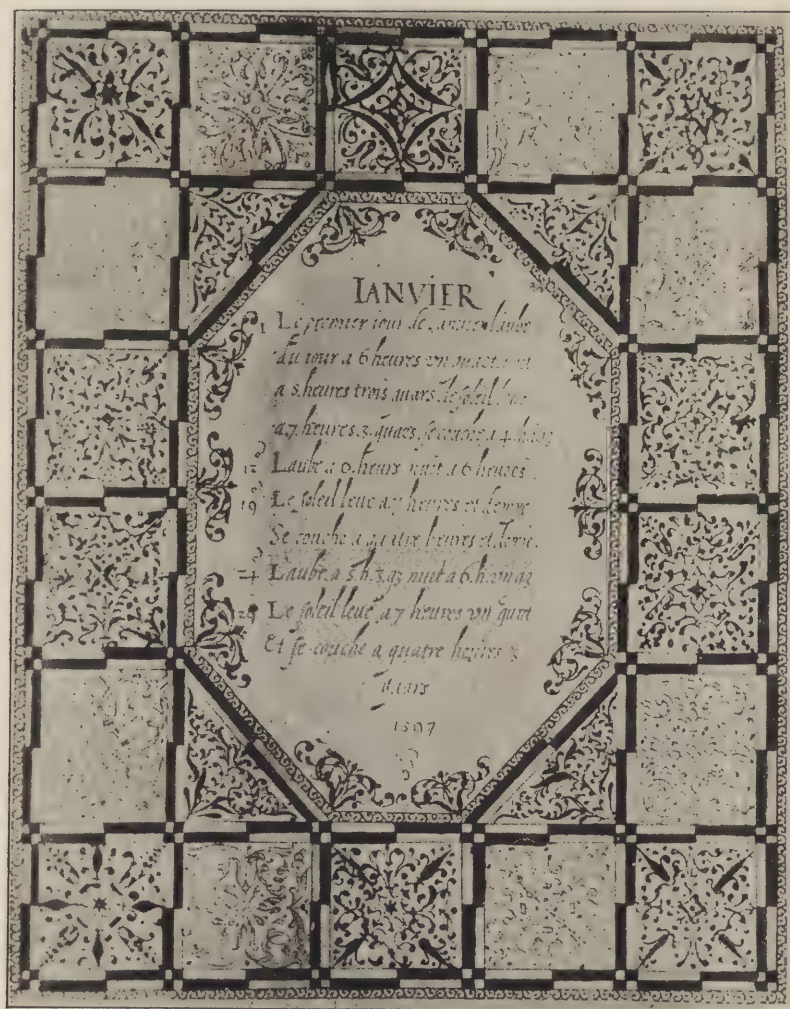 IANVIER
1 Le premier iour de Ianvier laube
du iour a 6 heures vn quart nuit
a 5 heures trois quars. le soleil leue
a 7 heures 3 quars, se couche a 4 heures
12 Laube a 6. heurs nuit a 6 heures.
19 Le soleil leue a 7 heures et demye
Se couche a quatre heures et demie.
24 Laube a 5 h. 3 q3 nuit a 6 h. vn q3
28 Le soleil leue a 7 heures vn quart
Et se couche a quatre heures 3
quars
1597